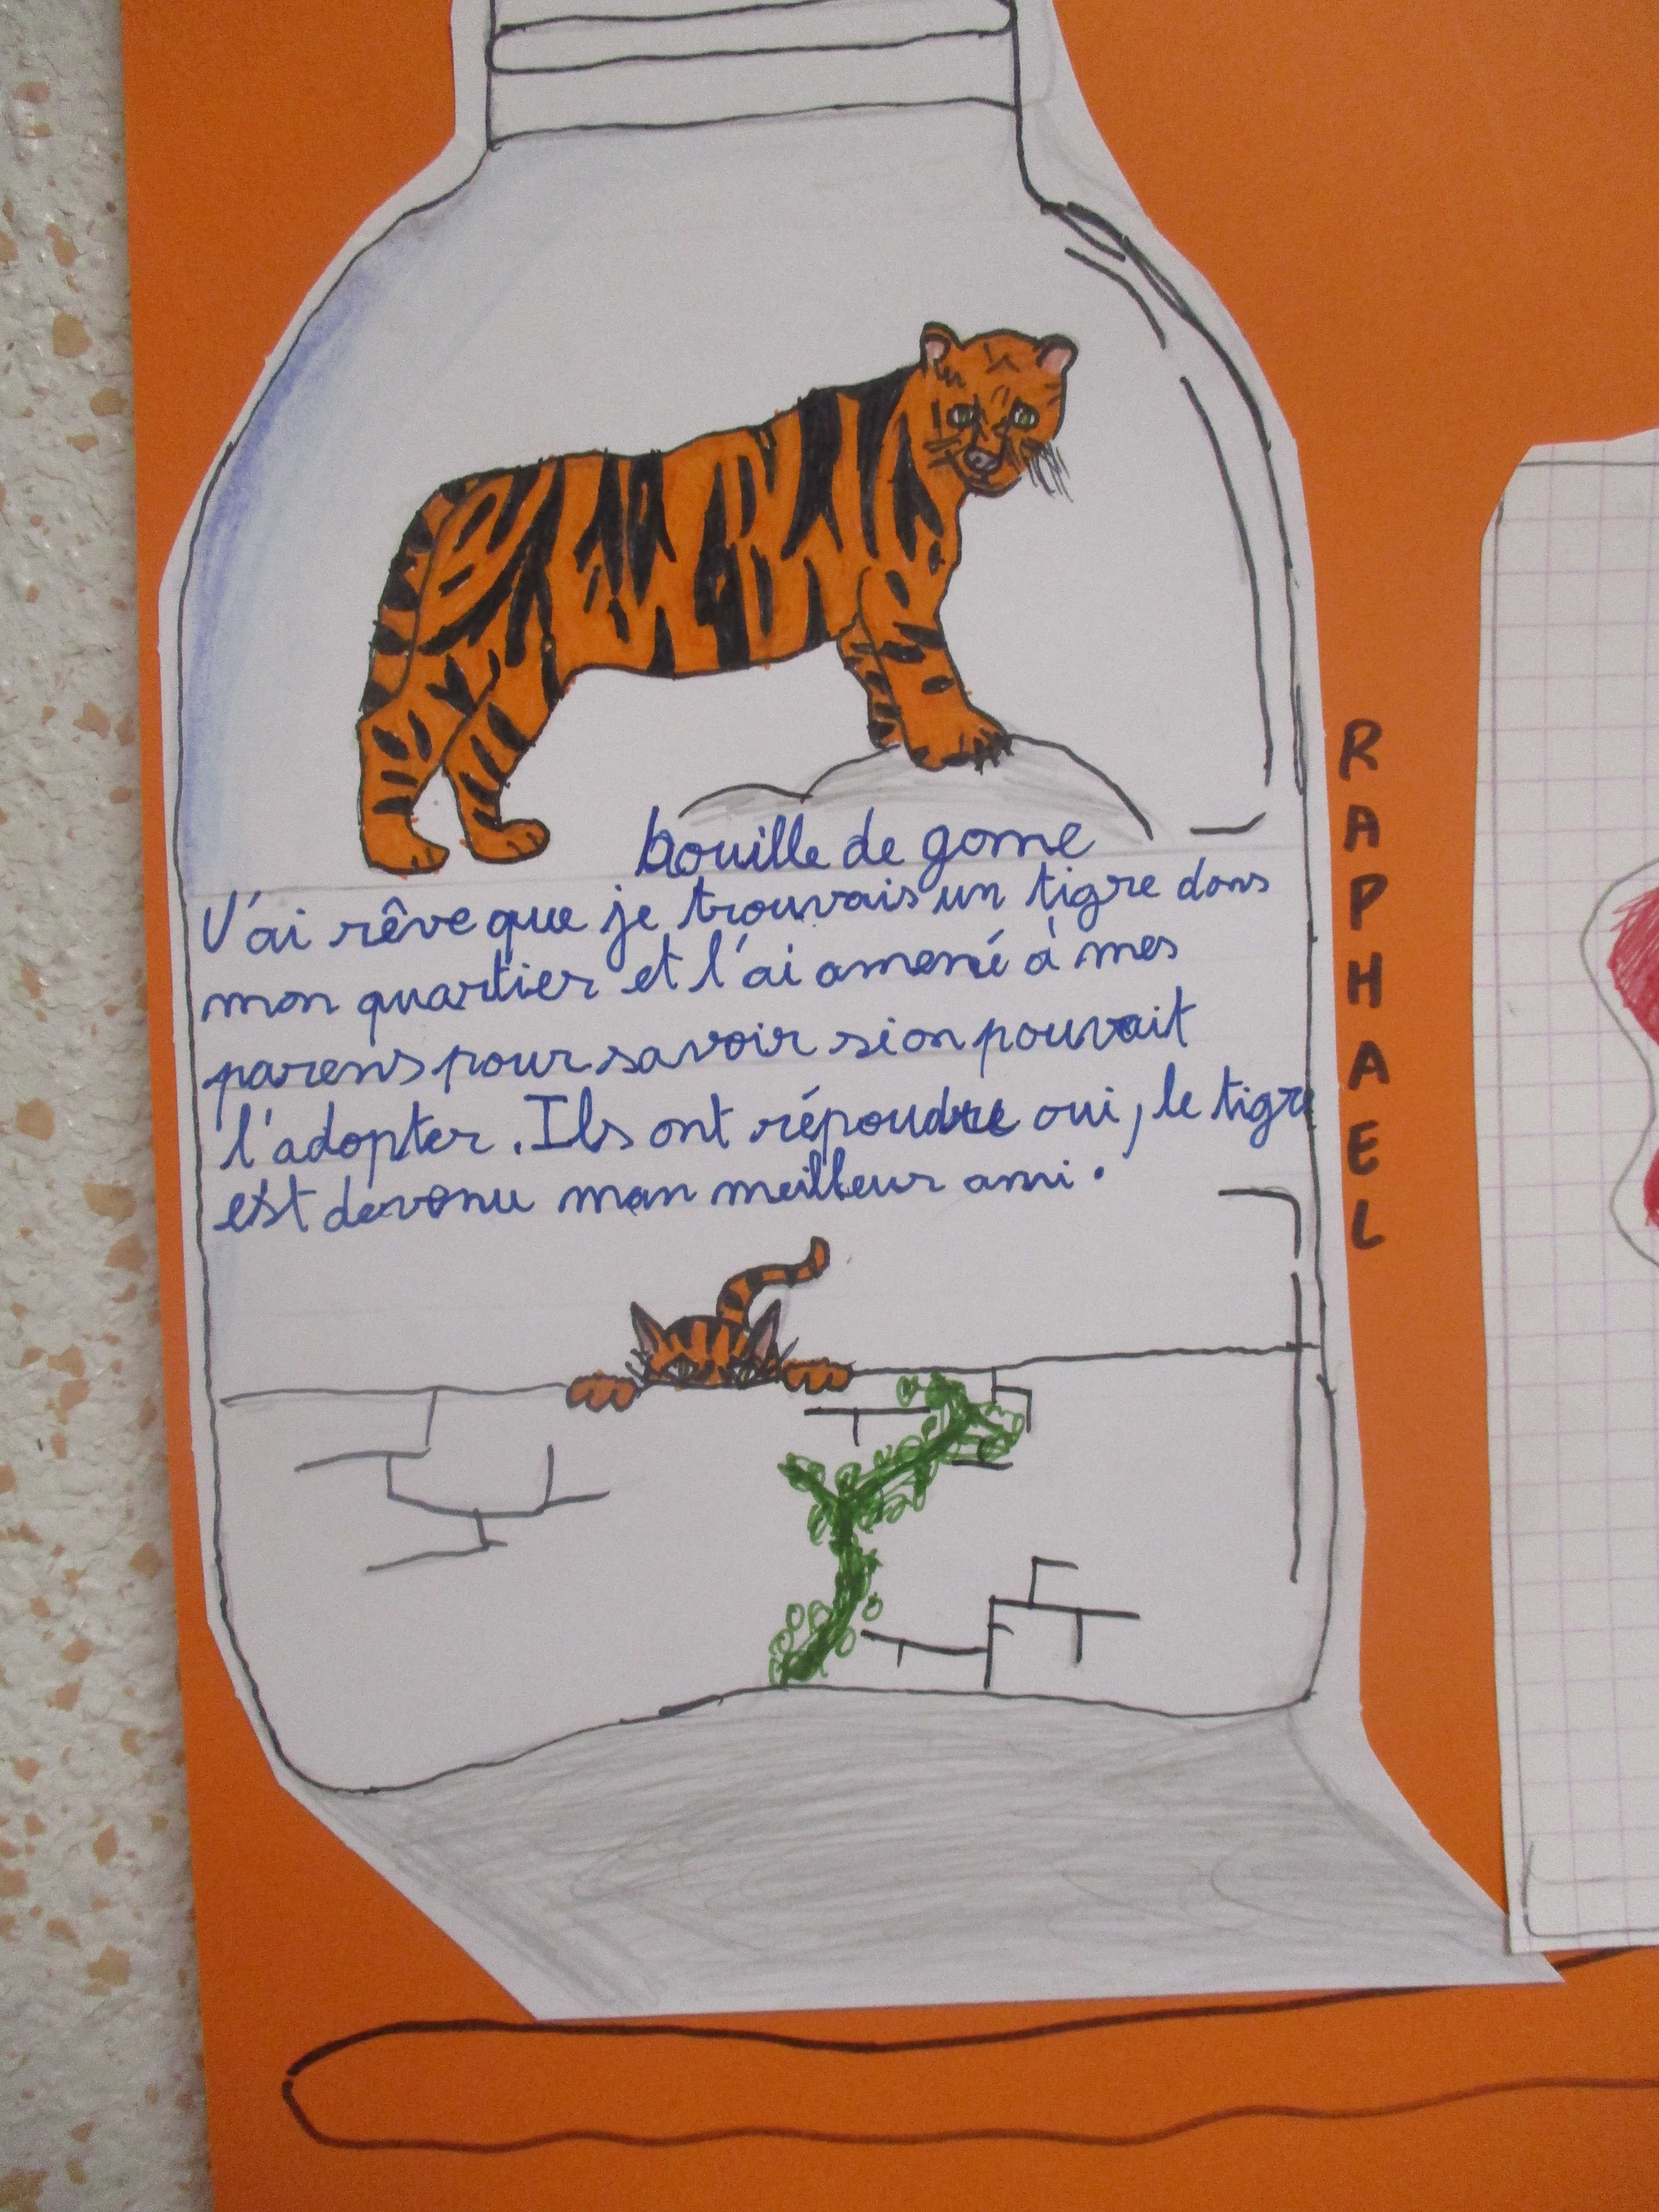 bouille de gome
J'ai rêve que je trouvais un tigre dans
mon quartier et l'ai amené à mes
parens pour savoir si on pouvait
l'adopter. Ils ont répoudre oui, le tigre
est devenu mon meilleur ami.
RAPHAEL